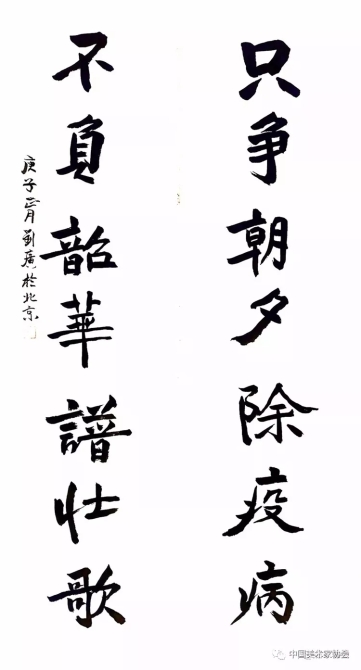 只争朝夕除疫病
不負韶華譜壮歌
庚子正月劉廣於北京
中国美术家协会